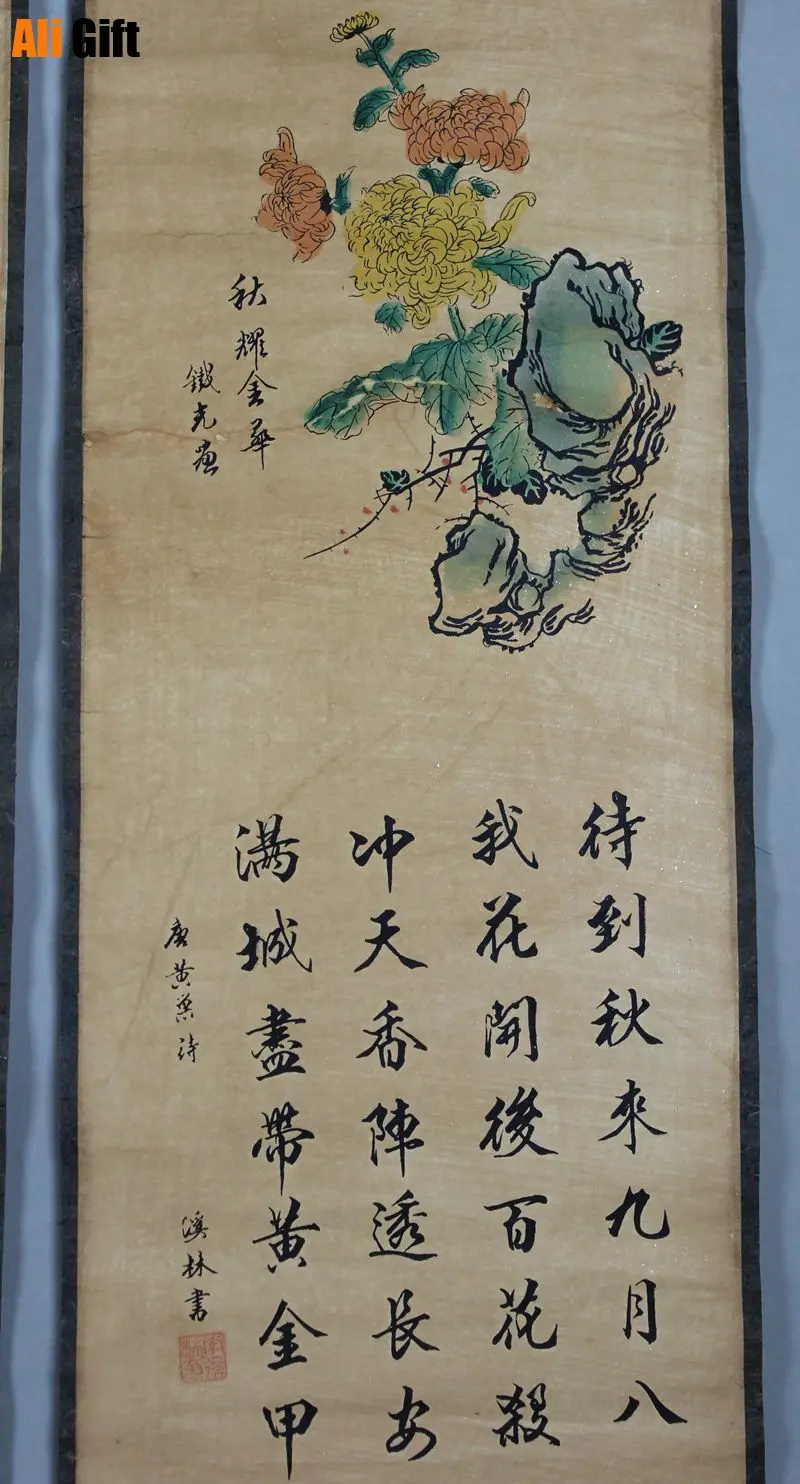 Ali Gift
秋耀金華
鐵光畫
待到秋來九月八
我花開後百花殺
冲天香陣透長安
滿城盡帶黃金甲
唐黃巢詩
溪林書